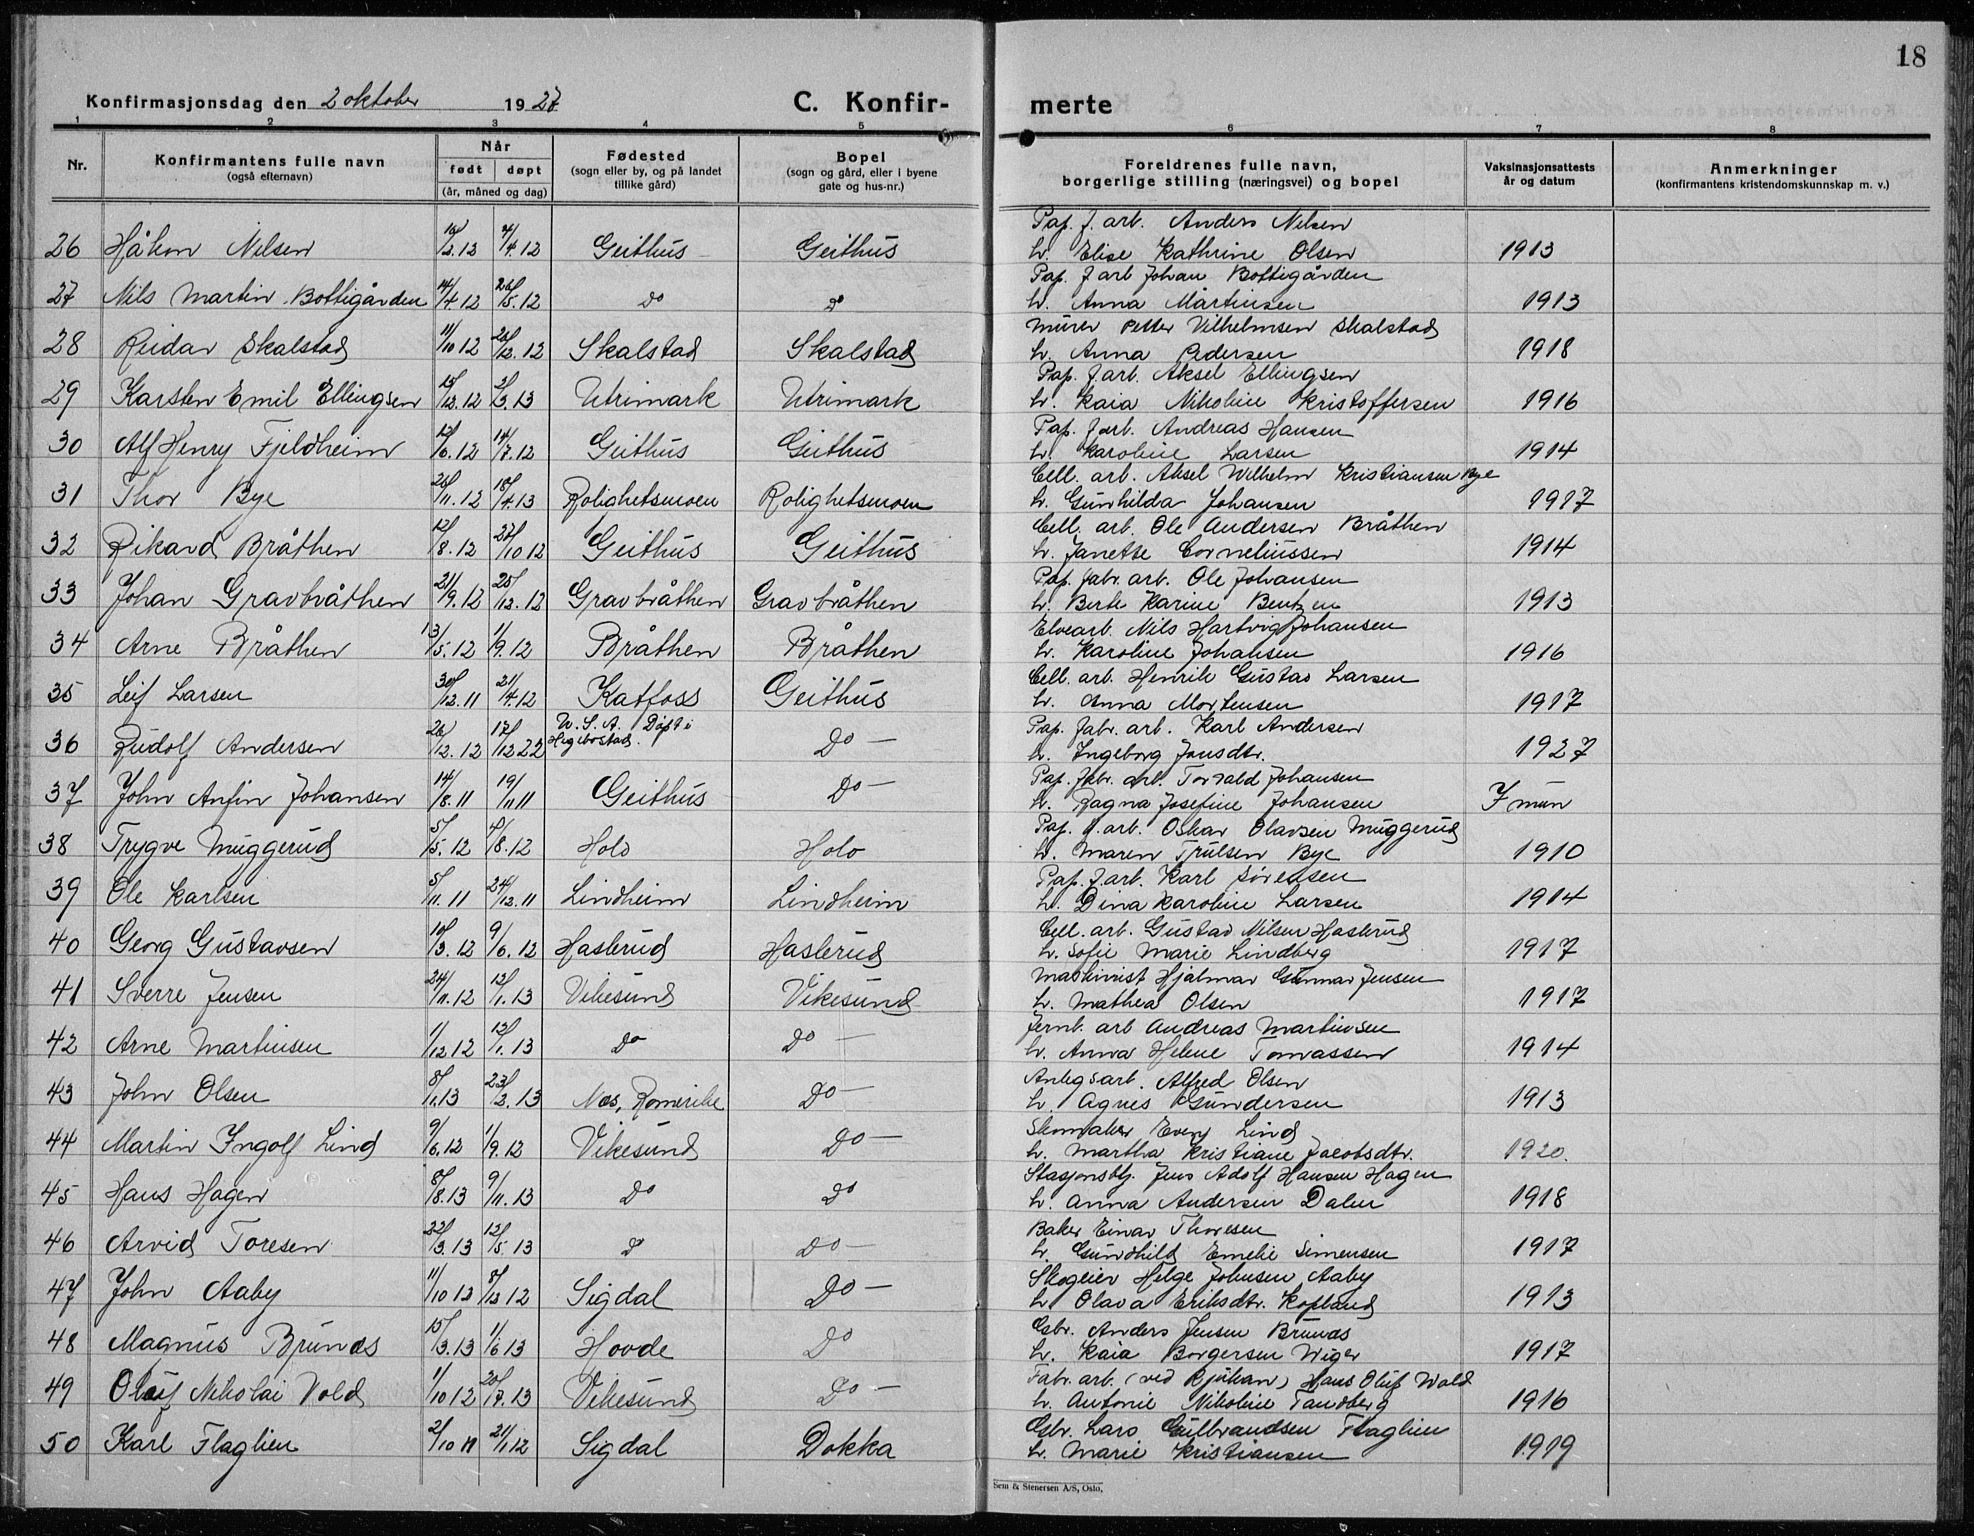 18
Konfirmasjonsdag den 2 oktober 1927 C. Konfirmerte
1 2 3 4 5 6 7 8
Nr. Konfirmantens fulle navn (også efternavn) Når født døpt (år, måned og dag) Fødested (sogn eller by, og på landet tillike gård) Bopel (sogn og gård, eller i byene gate og hus-nr.) Foreldrenes fulle navn, borgerlige stilling (næringsvei) og bopel Vaksinasjonsattests år og datum Anmerkninger (konfirmantens kristendomskunnskap m. v.)
Pap. f. arb. Anders Nilsen
26 Håkon Nilsen 4/4.12 Geithus Geithus h. Elise Kathrine Olsen 1913
Pap. f arb Johan Bottigården
27 Nils Martin Bottigården 14/4.12 26/5.12 do do h. Anna Martinsen 1913
Murer Petter Vilhelmsen Skalstad
28 Reidar Skalstad 11/10 12 26/12.12 Skalstad Skalstad h. Anna Pedersen 1918
Pap. f. arb. Aksel Ellingsen
29 Karsten Emil Ellingsen 15/12.12 2/3.13 Utrimark Utrimark h. Kaia Nikoline Kristoffersen 1916
Pap. f. arb. Andreas Hansen
30 Alf Henry Fjeldheim 12/6.12 14/7.12 Geithus Geithus h. Karoline Larsen 1914
Cell. arb. Aksel Wilhelm Kristiansen Bye
31 Thor Bye 26/11.12 18/4.13 Rolighetsmoen Rolighetsmoen h. Gunhilda Johansen 1917
Cell. arb. Ole Andersen Bråthen
32 Rikard Bråthen 12/8.12 27/10 12 Geithus Geithus h. Janette Corneliussen 1914
Pap. fabr. arb. Ole Johansen
33 Johan Gravbråthen 21/9.12 25/12.12 Gravbråthen Gravbråthen h. Berte Karine Bentzen 1913
Elvearb. Nils Hartvig Johansen
34 Arne Bråthen 13/5.12 1/9.12 Bråthen Bråthen h. Karoline Johansen 1916
Cell. arb. Henrik Gustav Larsen
35 Leif Larsen 30/12.11 21/4.12 Katfoss Geithus h. Anna Mortensen 1917
U. S. A. Døpt i Pap. fabr. arb. Karl Andersen
36 Rudolf Andersen 26/12.12 17/12 22 Do — h. Ingeborg Jonsdtr. 1927
Pap. fabr. arb. Torvald Johansen
37 John Anfin Johansen 14/8.11 19/11 11 Geithus Do — h. Ragna Josefine Johansen
Pap. f. arb. Oskar Olavsen Muggerud
38 Trygve Muggerud 5/5.12 4/8.12 Holo Holo h. Maren Trulsen Bye 1910
Pap. f. arb. Karl Sørensen
39 Ole Karlsen 5/11.11 24/12.11 Lindheim Lindheim h. Dina Karoline Larsen 1914
Cell. arb. Gustav Nilsen Haslerud
40 Georg Gustavsen 10/3.12 9/6.12 Haslerud Haslerud h. Sofie Marie Lindberg 1917
Maskinist Hjalmar Gunnar Jensen
41 Sverre Jensen 24/11.12 12/1.13 Vikesund Vikesund h. Mathea Olsen 1917
Jernb. arb Andreas Martinsen
42 Arne Martinsen 1/12 12 12/1.13 do Do — h. Anna Helene Tomassen 1914
Anlegsarb. Alfred Olsen
43 John Olsen 8/1.13 23/3.13 Nes, Romerike Do — h. Agnes Gundersen 1913
Skomaker Evert Lind
44 Martin Ingolf Lind 9/6.12 1/9.12 Vikesund Do — h. Martha Kristiane Jacobsdtr. 1920.
Stasjonsbtj. Jens Adolf Hansen Hagen
45 Hans Hagen 8/8.13 9/11.13 Do Do h. Anna Andersen Dalen 1918
Baker Einar Thoresen
46 Arvid Toresen 22/3.13 12/5.13 Do — h. Gundhild Emelie Simensen 1917
Skogeier Helge Johnsen Aaby
47 John Aaby 8/12 12 Sigdal Do — h. Olava Eriksdtr. Kopland 1913
Gbr. Anders Jensen Brunæs
48 Magnus Brunæs 15/3.13 1/6 13 Hovde Do h. Kaia Borgersen Wiger 1917
Fabr. arb. (ved Rjukan) Hans Oluf Wold
49 Oluf Nikolai Vold 1/10 12 20/7.13 Vikesund Do — h. Antonie Nikoline Tandberg 1916
Gbr. Lars Gulbrandsen Flaglien
50 Karl Flaglien 2/10 11 21/1.12 Sigdal Dokka h. Marie Kristiansen 1919
Sem & Stenersen A/S, Oslo.